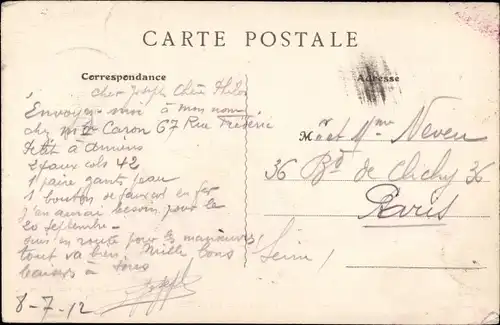 CARTE POSTALE
Correspondance
Adresse
cher Joseph Chère
Envoyez-moi à mon nom
chez Mme Caron 67 Rue Frédéric
Petit à Amiens
2 faux cols 42
1 paire gants peau
1 bouton de faux col en fer
j'en aurai besoin pour le
20 septembre -
suis en route pour les manœuvres
tout va bien. Mille bons
baisers à tous
Joseph
8-7-12
Mr et Mme Neveu
36 Bd de Clichy 36
Paris
Seine